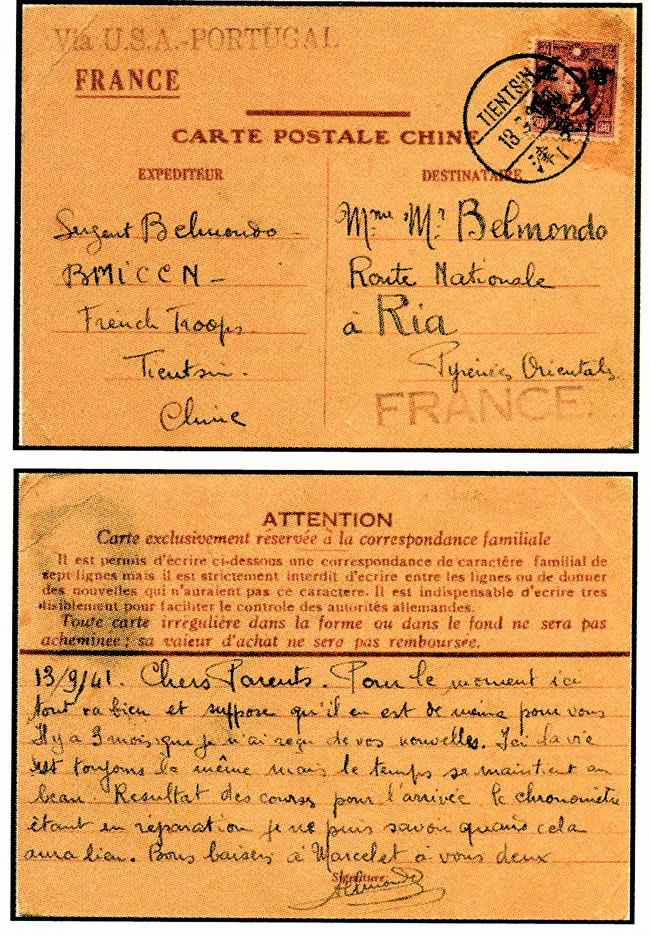 Via U.S.A.-PORTUGAL
FRANCE
TIENTSIN
13
津
CARTE POSTALE CHINE
EXPÉDITEUR
Sergent Belmondo -
BMICCN -
French Troops.
Tientsin.
Chine
DESTINATAIRE
Mme Mr Belmondo
Route Nationale
à Ria
Pyrénées Orientales
FRANCE.
ATTENTION
Carte exclusivement réservée à la correspondance familiale
Il est permis d'écrire ci-dessous une correspondance de caractère familial de
sept lignes mais il est strictement interdit d'ecrire entre les lignes ou de donner
des nouvelles qui n'auraient pas ce caractere. Il est indispensable d'ecrire tres
lisiblement pour faciliter le controle des autorités allemandes.
Toute carte irregulière dans la forme ou dans le fond ne sera pas
acheminée ; sa valeur d'achat ne sera pas remboursée.
13/9/41. Chers Parents. Pour le moment ici
tout va bien et suppose qu'il en est de même pour vous
Il y a 3 mois que je n'ai reçu de vos nouvelles. Ici la vie
est toujours la même mais le temps se maintient au
beau. Resultat des courses pour l'arrivée le chronomètre
étant en réparation je ne puis savoir quand cela
aura lieu. Bons baisers à Marcelet à vous deux
Signature